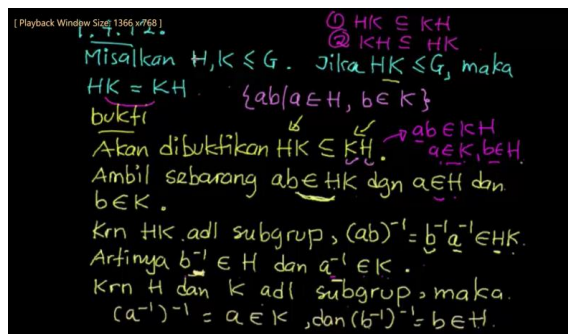 [ Playback Window Size: 1366 x 768 ]
① HK ⊆ KH
1.4.12.
② KH ⊆ HK
Misalkan H,K ≤ G. Jika HK ≤ G, maka
HK = KH
{ab|a∈H, b∈K}
bukti
Akan dibuktikan HK ⊆ KH.
ab∈KH
a∈K, b∈H
Ambil sebarang ab∈HK dgn a∈H dan
b∈K.
Krn HK adl subgrup, (ab)⁻¹ = b⁻¹a⁻¹∈HK.
Artinya b⁻¹ ∈ H dan a⁻¹ ∈ K.
Krn H dan K adl subgrup, maka
(a⁻¹)⁻¹ = a∈K, dan (b⁻¹)⁻¹ = b∈H.